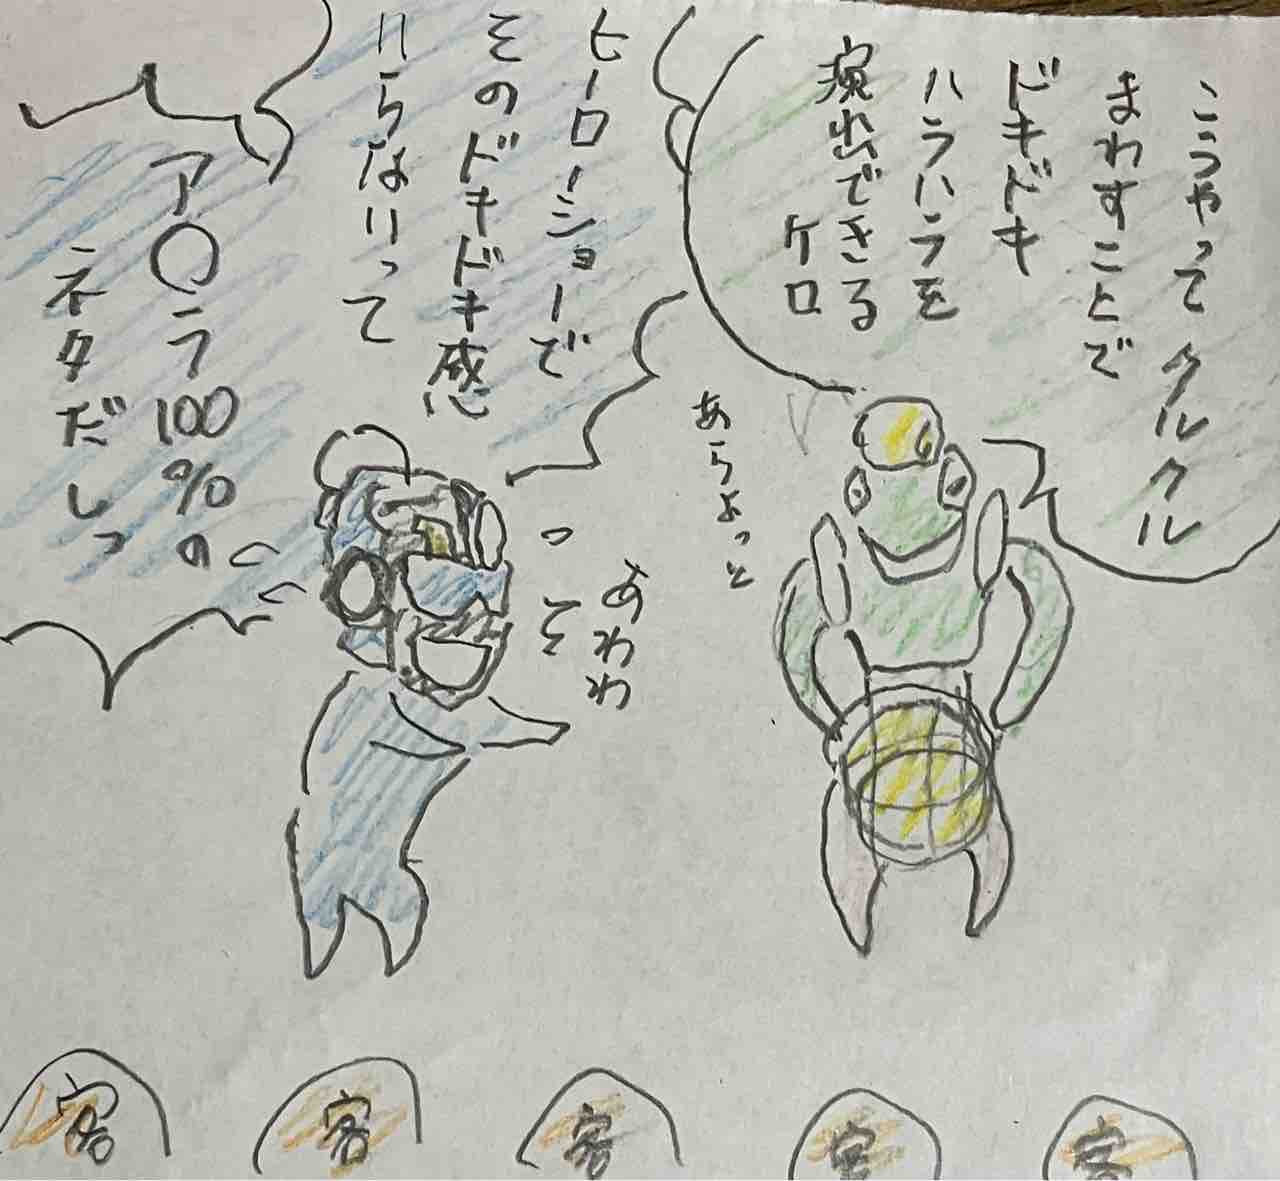 こうやってクルクル
まわすことで
ドキドキ
ハラハラを
演出できる
ケロ
あらよっと
ヒーローショーで
そのドキドキ感
いらないって
あわわ
って
ア〇ラ100%の
ネタだしっ
客
客
客
客
客